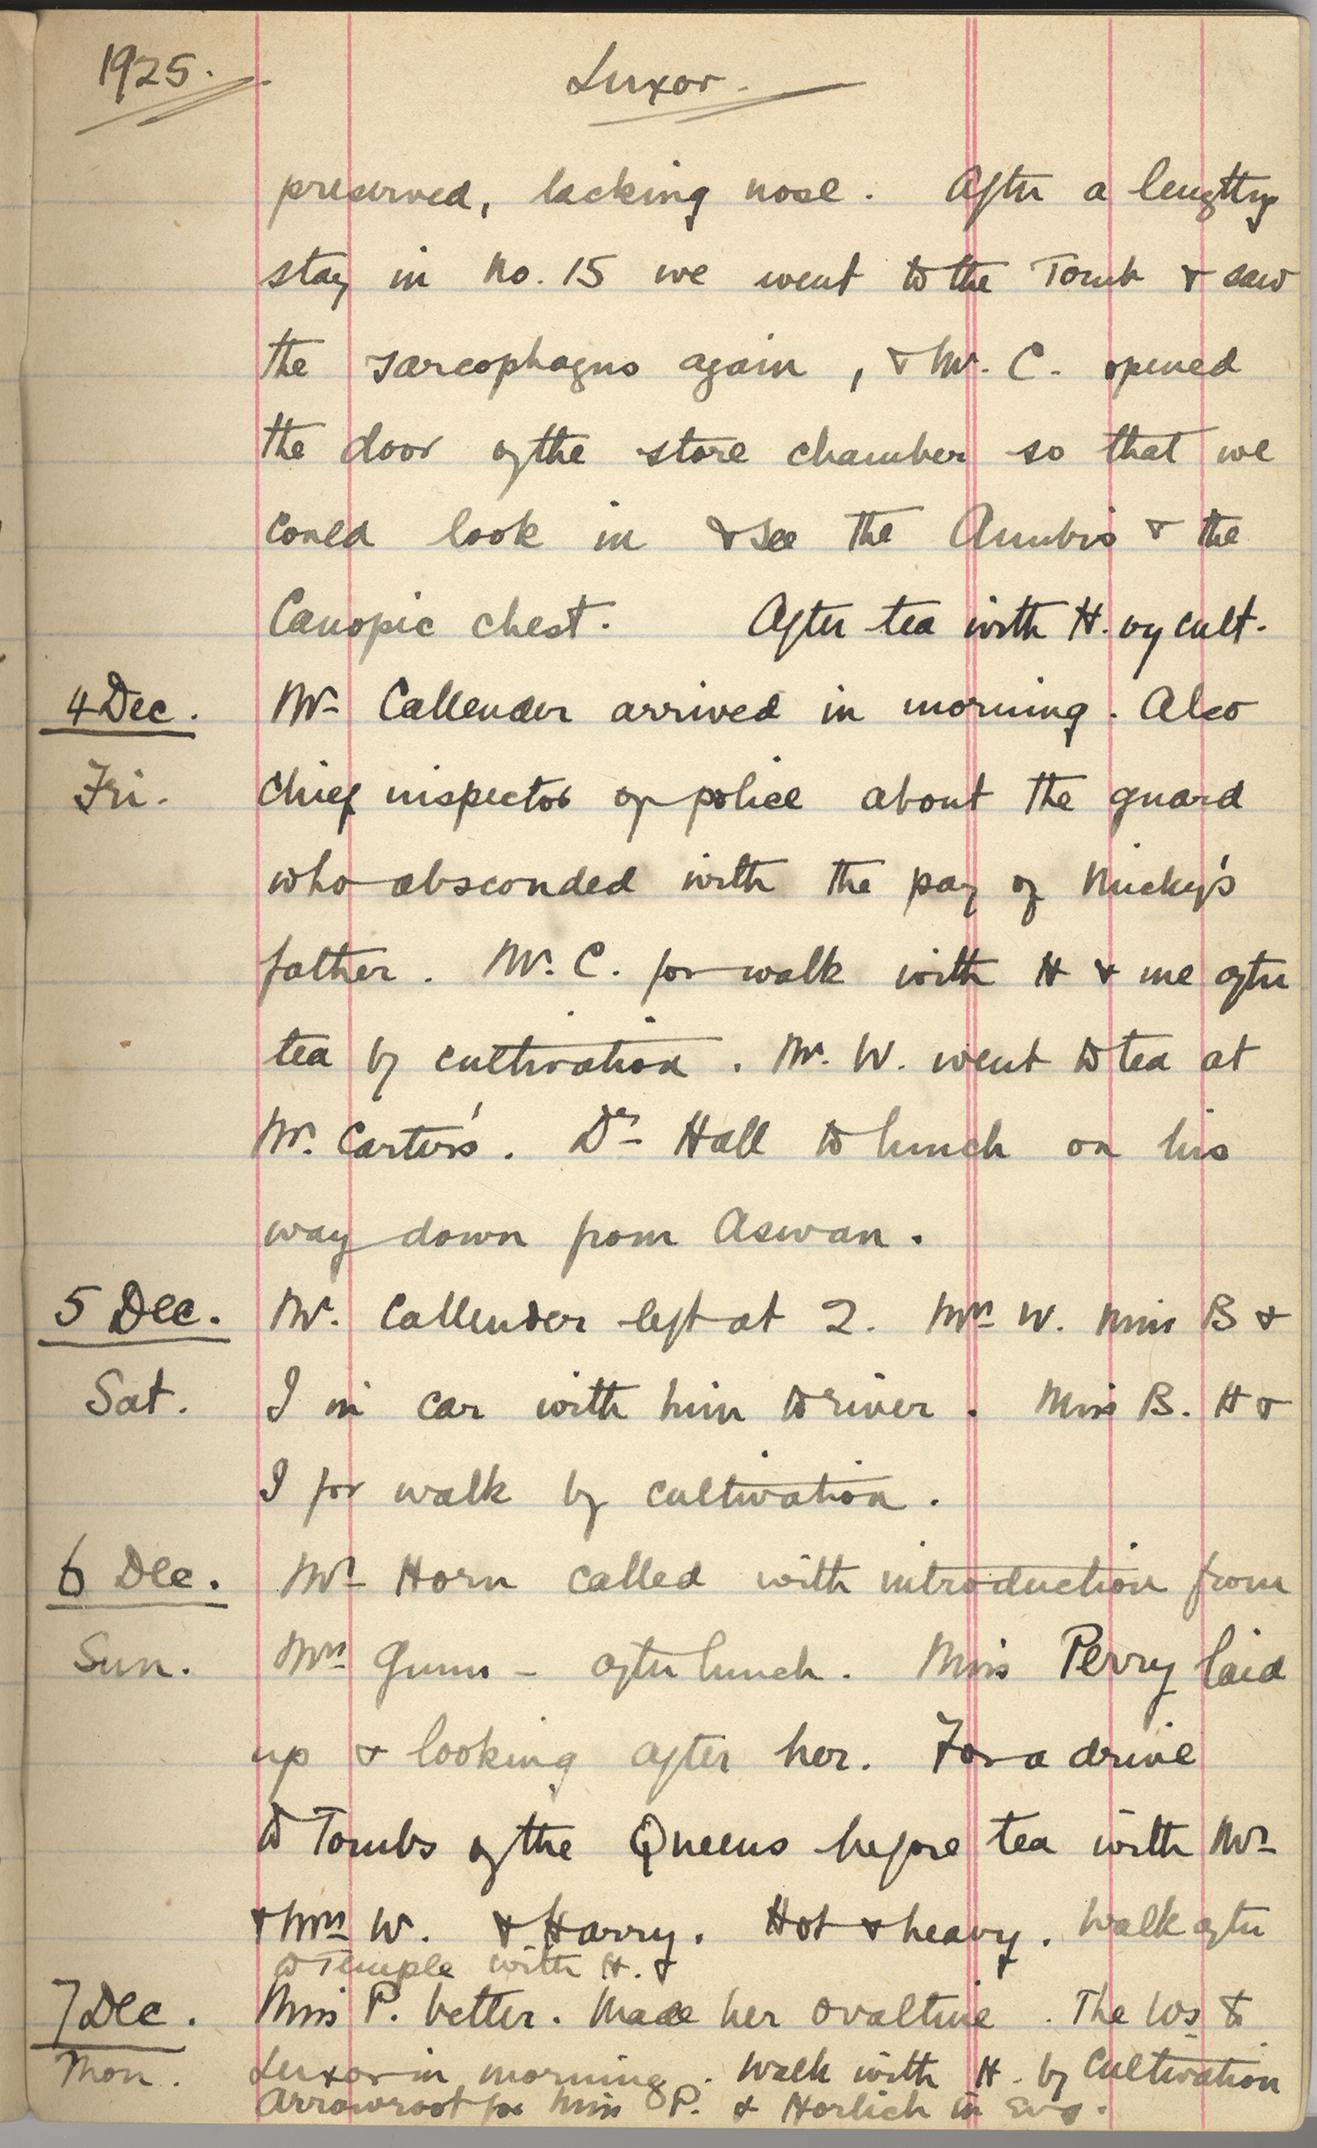 1925. Luxor.
preserved, lacking nose. After a lengthy
stay in No. 15 we went to the Tomb & saw
the sarcophagus again, & Mr. C. opened
the door of the store chamber so that we
could look in & see the Anubis & the
Canopic chest. After tea with H. by cult.
4 Dec. Mr Callender arrived in morning. Also
Fri. Chief inspector of police about the guard
who absconded with the pay of Nicky's
father. Mr. C. for walk with H & me after
tea by cultivation. Mr. W. went to tea at
Mr. Carter's. Dr Hall to lunch on his
way down from Aswan.
5 Dec. Mr. Callender left at 2. Mrs W. Miss B &
Sat. I in car with him to river. Miss B. H &
I for walk by cultivation.
6 Dec. Mr Horn called with introduction from
Sun. Mrs Gunn - after lunch. Miss Perry laid
up & looking after her. For a drive
to Tombs of the Queens before tea with Mr
& Mrs W. & Harry. Hot & heavy. Walk after
to Temple with H. &
7 Dec. Miss P. better. Made her ovaltine. The Ws to
Mon. Luxor in morning. Walk with H. by Cultivation
Arrowroot for Miss P. & Horlich in Evg.